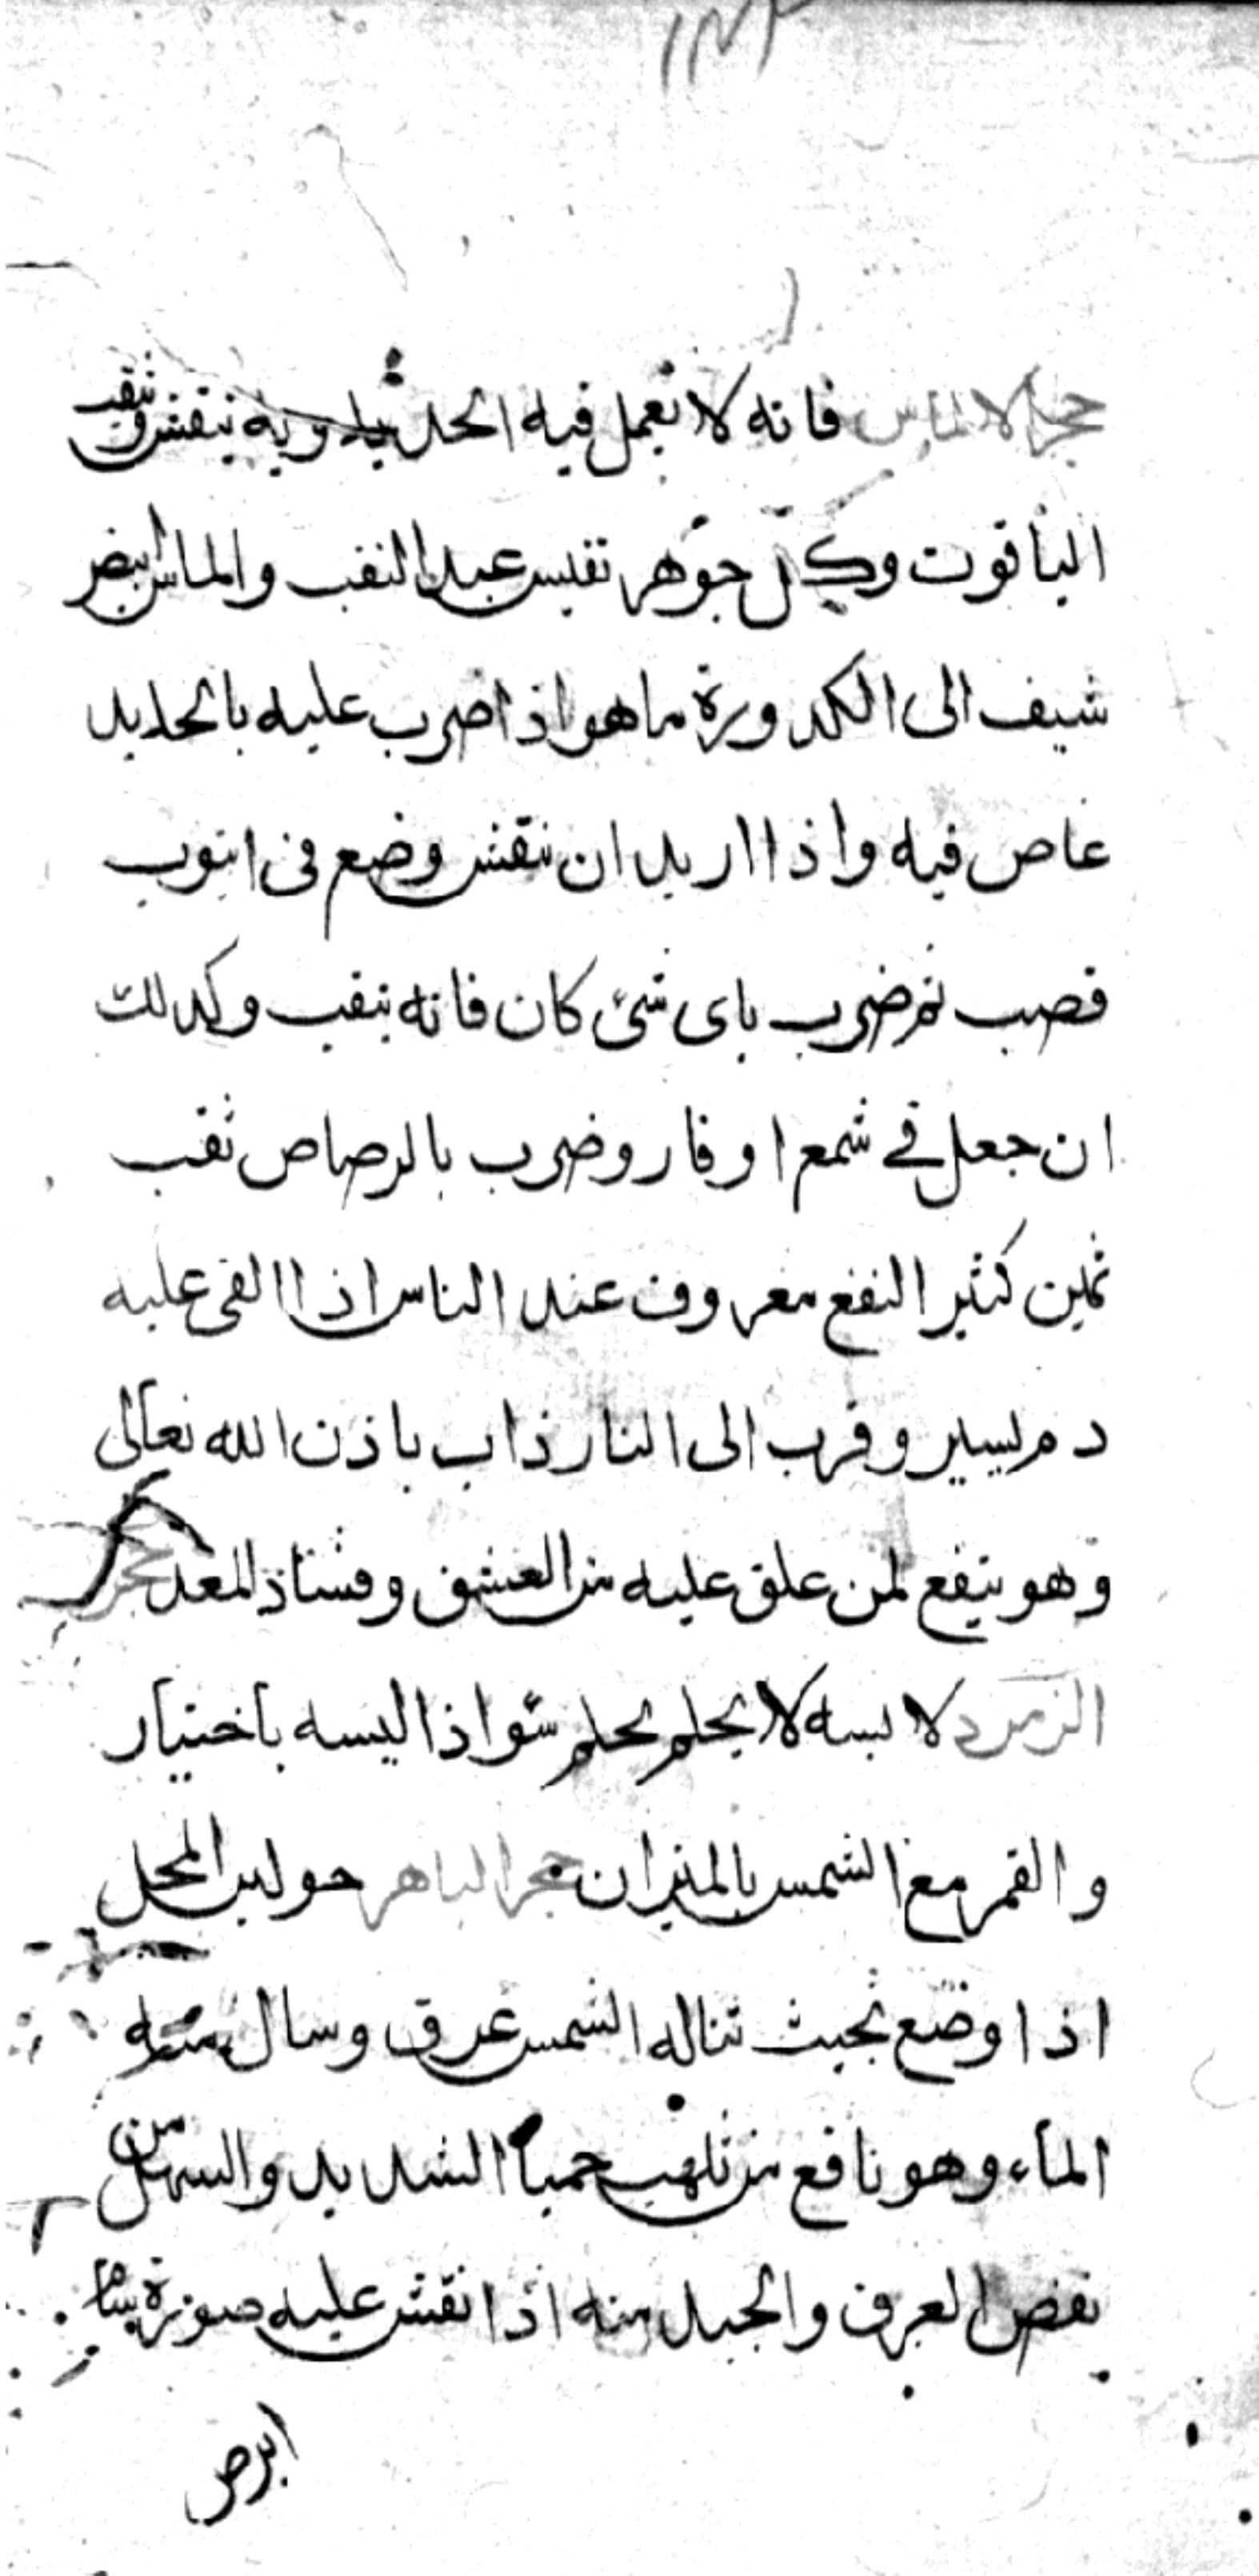 حجر الالماس فانه لا تعمل فيه الحد وبه ينقش وثقب
الياقوت وكل جوهر نفيس عند النقب والماس ابيض
شيف الى الكدورة ما هو اذا ضرب عليه بالحديد
غاص فيه واذا اريد ان ينقش وضع فى انبوب
قصب ثم ضرب باى شئ كان فانه ينقب وكدلك
ان جعل فى شمع او قار وضرب بالرصاص نقب
ثمين كثير النفع معروف عند الناس اذا القى عليه
دم يسير وقرب الى النار ذاب باذن الله تعالى
وهو ينفع لمن علق عليه من العشق وفساد المعد حجر
الزمرد لابسه لا يحلم بحلم سو اذا لبسه باختيار
والقمر مع الشمس بالميزان حجر الباهر المحل
اذا وضع بحيث تناله الشمس عرق وسال منه
الماء وهو نافع من تلهب حميا الشديد والسهل من
نفض العرق والجيد منه اذا نقش عليه صورة سام
ابرص